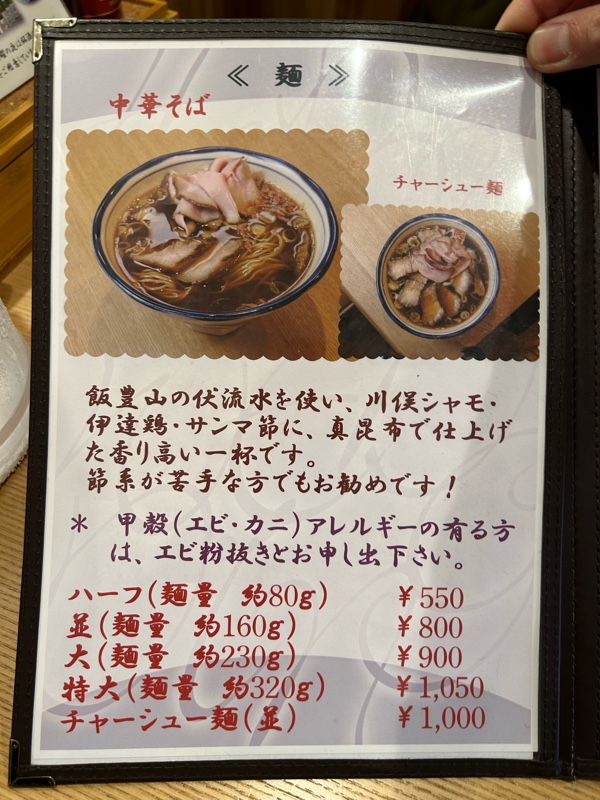 ≪ 麺 ≫
中華そば
チャーシュー麺
飯豊山の伏流水を使い、川俣シャモ・
伊達鶏・サンマ節に、真昆布で仕上げ
た香り高い一杯です。
節系が苦手な方でもお勧めです！
＊ 甲殻(エビ・カニ)アレルギーの有る方
は、エビ粉抜きとお申し出下さい。
ハーフ(麺量 約80g) ￥550
並(麺量 約160g) ￥800
大(麺量 約230g) ￥900
特大(麺量 約320g) ￥1,050
チャーシュー麺(並) ￥1,000